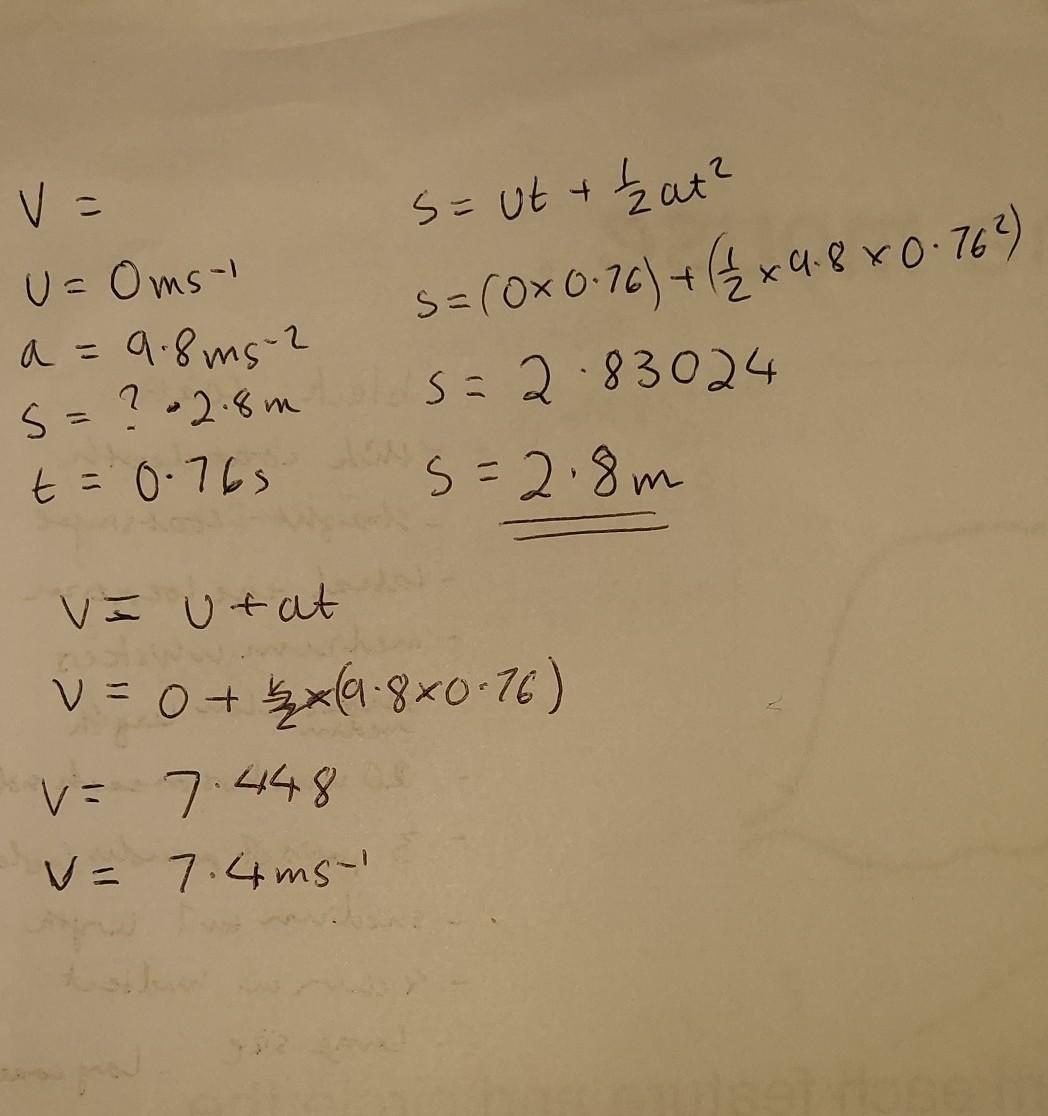 V =
U = 0ms⁻¹
a = 9.8ms⁻²
S = ? 2.8m
t = 0.76s
S = Ut + ½at²
S = (0 × 0.76) + (½ × 9.8 × 0.76²)
S = 2.83024
S = 2.8m
V = U + at
V = 0 + (9.8 × 0.76)
V = 7.448
V = 7.4ms⁻¹